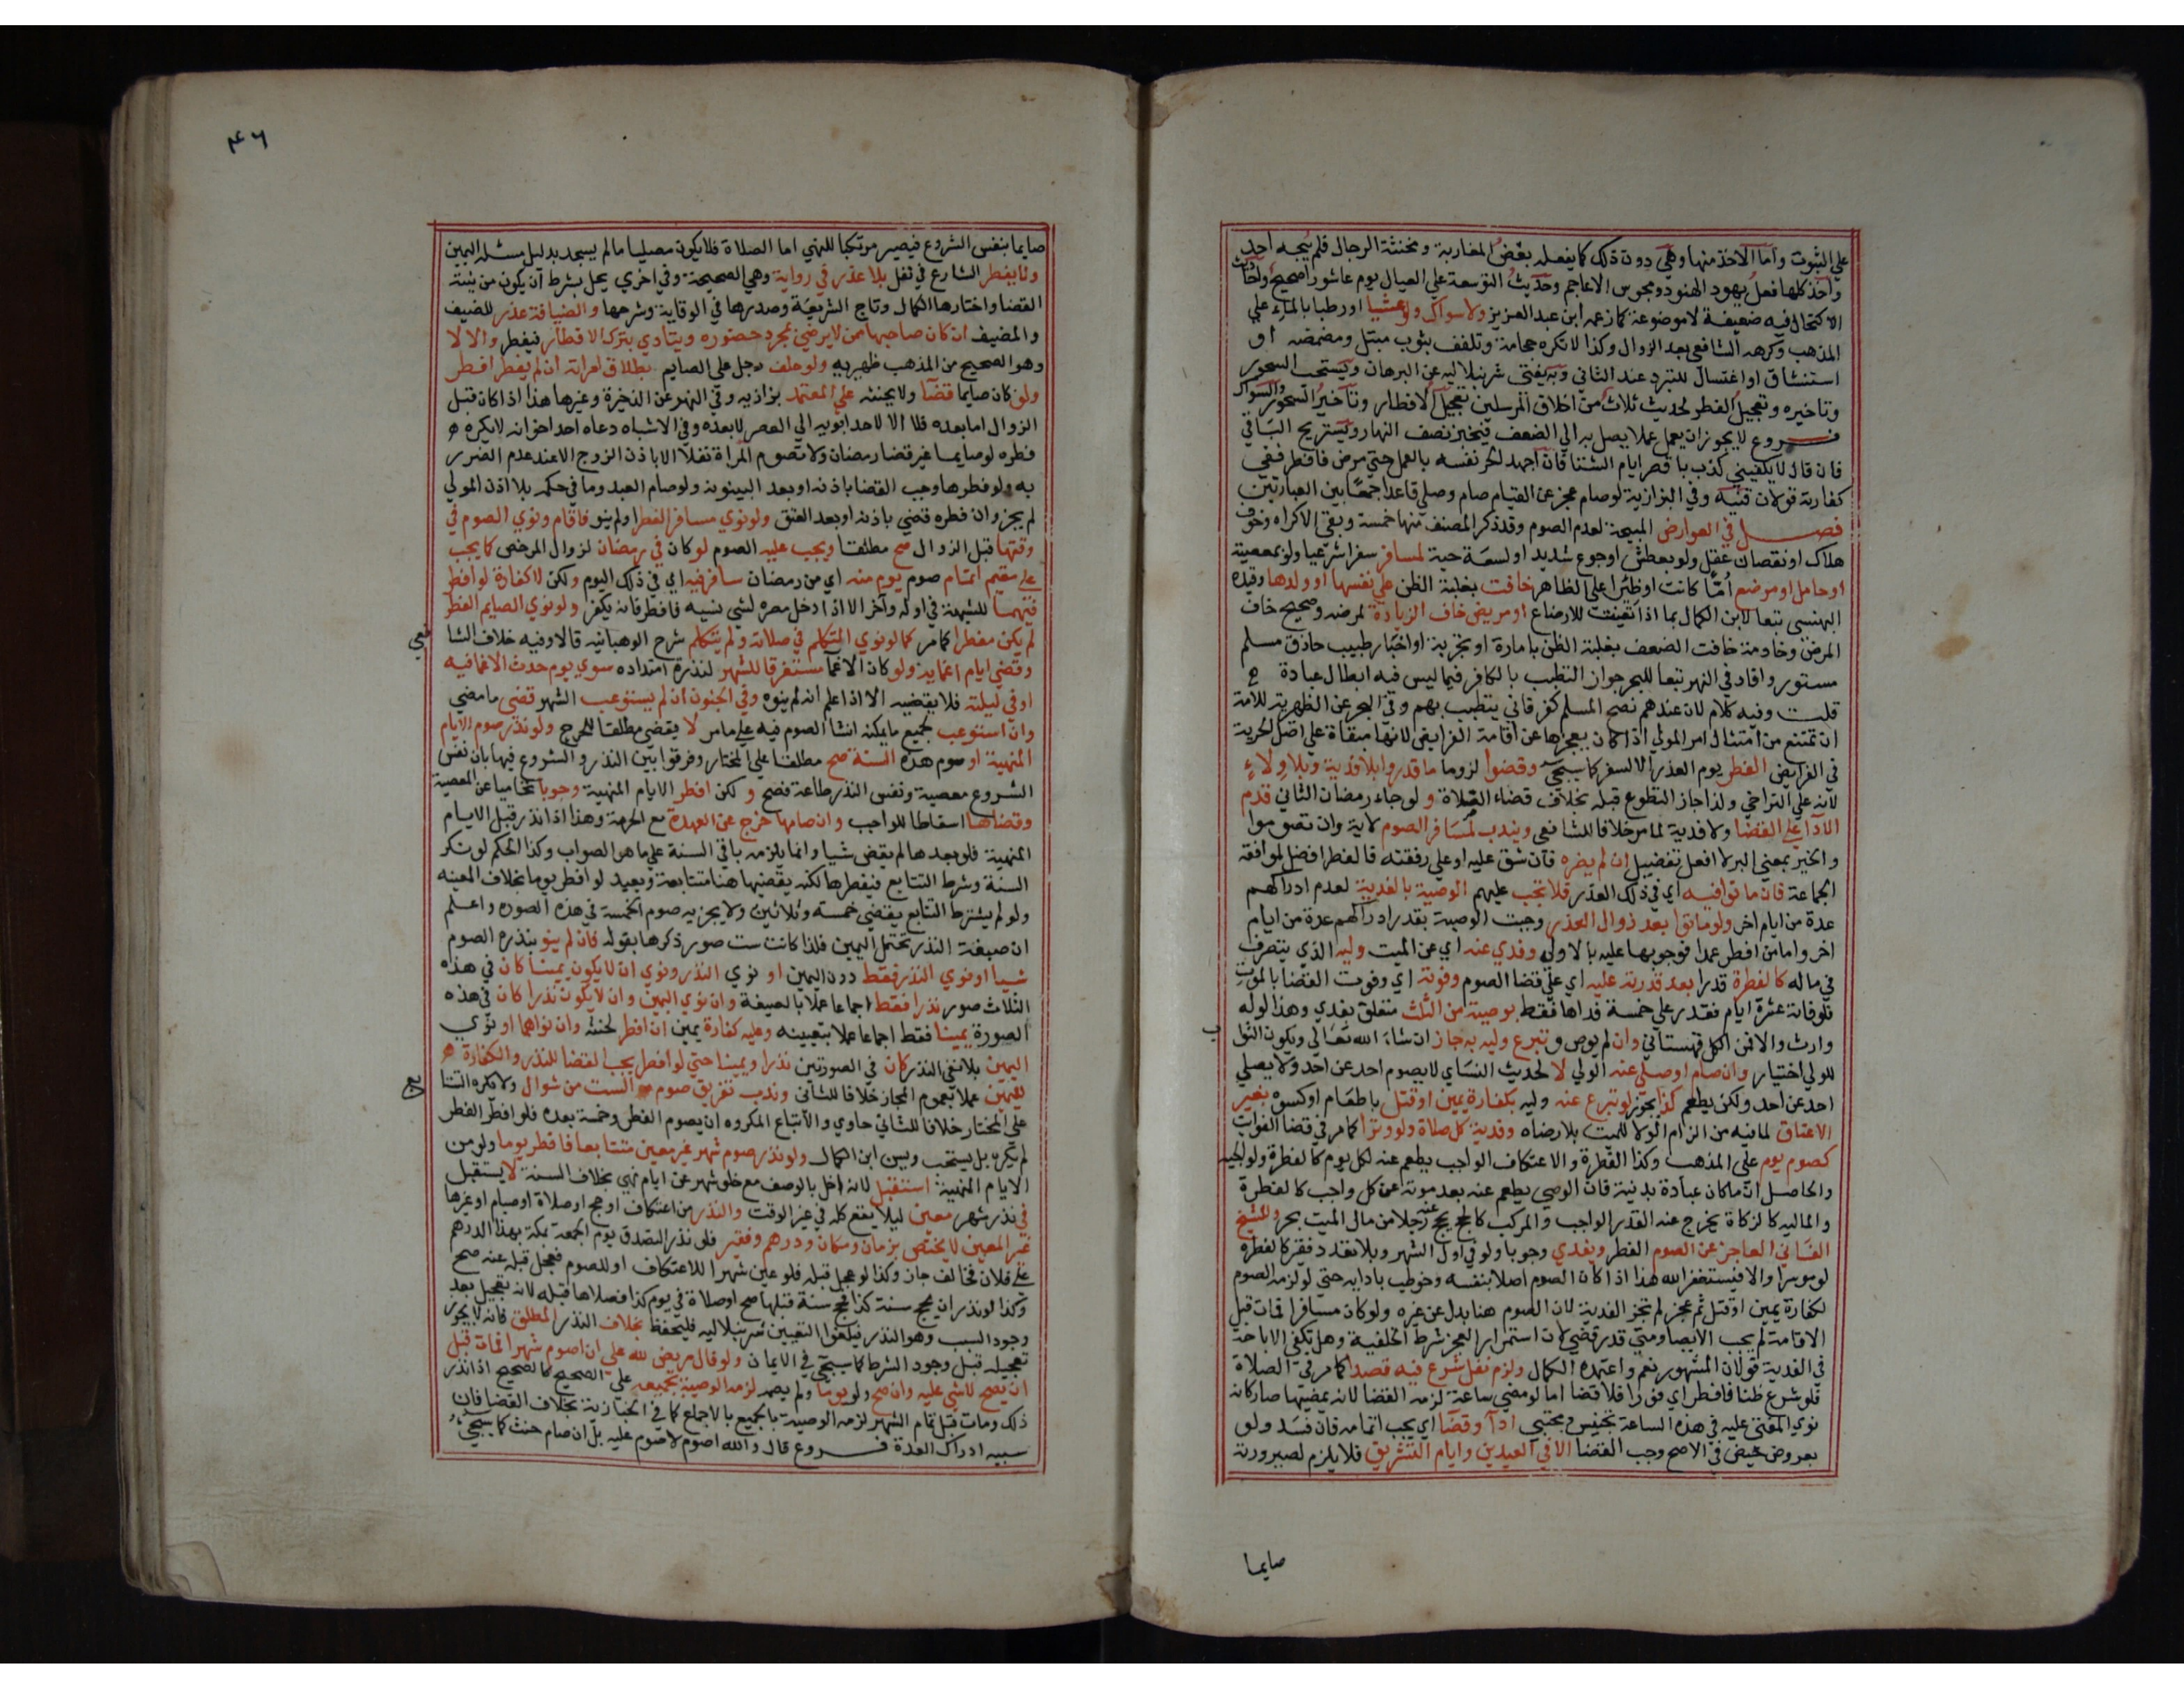 على الثبوت واما الاخذ منها وهي دون ذلك كما يفعله بعض المغاربة ومخنثة الرجال فلم يبحه احد
واخذ كلها فعل يهود الهنود ومجوس الاعاجم وحديث التوسعة علي العيال يوم عاشورا صحيح واحاديث
الاكتحال فيه ضعيفة لا موضوعة كما زعمه ابن عبد العزيز ولا سواك ولو عشيا او رطبا بالماء علي
المذهب وكرهه الشافعي بعد الزوال وكذا لا تكره حجامة وتلفف بثوب مبتل ومضمضه او
استنشاق او اغتسال للتبرد عند الثاني وبه يفتي شرنبلاليه عن البرهان ويستحب السحور
وتاخيره وتعجيل الفطر لحديث ثلاث من اخلاق المرسلين تعجيل الافطار وتاخير السحور والسواك
فروع لا يجوز ان يعمل عملا يصل به الي الضعف فيخبز نصف النهار ويستريح الباقي
فان قال لا يكفيني كذب باقصر ايام الشتا فان اجهد الحر نفسه بالعمل حتي مرض فافطر ففي
كفارته قولان قنيه وفي البزازية لو صام عجز عن القيام صام وصلي قاعدا جمعا بين العبادتين
فصل في العوارض المبيحة لعدم الصوم وقد ذكر المصنف منها خمسة وبقي الاكراه وخوف
هلاك او نقصان عقل ولو بعطش او جوع شديد او لسعة حية لمسافر سفرا شرعيا ولو بمعصية
او حامل او مرضع اما كانت او ظئرا علي الظاهر خافت بغلبة الظن علي نفسها او ولدها وقيده
البهنسي تبعا لابن الكمال بما اذا تعينت للارضاع او مريض خاف الزيادة لمرضه وصحيح خاف
المرض وخادمة خافت الضعف بغلبة الظن بامارة او تجربة او اخبار طبيب حاذق مسلم
مستور وافاد في النهر تبعا للبحر جواز التطبب بالكافر فيما ليس فيه ابطال عبادة
قلت وفيه كلام لان عندهم نصح المسلم كفر فاني يتطبب بهم وفي البحر عن الظهرية للامة
ان تمتنع من امتثال امر المولي اذا كان يعجزها عن اقامة الفرايض لانها مبقاة علي اصل الحرية
في الفرايض الفطر يوم العذر الا السفر كما سيجي وقضوا لزوما ما قدروا بلا فدية وبلا ولاء
لانه علي التراخي ولذا جاز التطوع قبله بخلاف قضاء الصلاة ولو جاء رمضان الثاني قدم
الادا علي القضا ولا فدية لما مر خلافا للشافعي ويندب لمسافر الصوم لاية وان تصوموا
والخير بمعني البر لا افعل تفضيل ان لم يضره فان شق عليه او علي رفقته فالفطر افضل لموافقة
الجماعة فان ماتوا فيه اي في ذلك العذر فلا تجب عليهم الوصية بالفدية لعدم ادراكهم
عدة من ايام اخر ولو ماتوا بعد زوال العذر وجبت الوصية بقدر ادراكهم عدة من ايام
اخر واما من افطر عمدا فوجوبها عليه بالاولي وفدي عنه اي عن الميت وليه الذي يتصرف
في ماله كالفطرة قدرا بعد قدرته عليه اي علي قضا الصوم وفوته اي وفوت القضا بالموت
فلو فاته عشرة ايام فقدر علي خمسة فداها فقط بوصيته من الثلث متعلق بفدي وهذا لو له
وارث والا فمن الكل قهستاني وان لم يوص وتبرع وليه به جاز ان شاء الله تعالي ويكون الثواب
للولي اختيار وان صام او صلي عنه الولي لا لحديث النساي لا يصوم احد عن احد ولا يصلي
احد عن احد ولكن يطعم كذا يجوز لو تبرع عنه وليه بكفارة يمين او قتل باطعام او كسوة بغير
الاعتاق لما فيه من الزام الولا للميت بلا رضاه وفدية كل صلاة ولو وترا كما مر في قضا الفوايت
كصوم يوم علي المذهب وكذا الفطرة والاعتكاف الواجب يطعم عنه لكل يوم كالفطرة ولوالجيه
والحاصل ان ما كان عبادة بدنية فان الوصي يطعم عنه بعد موته عن كل واجب كالفطرة
والماليه كالزكاة يخرج عنه القدر الواجب والمركب كالحج يحج عنه رجلا من مال الميت بحر وللشيخ
الفاني العاجز عن الصوم الفطر ويفدي وجوبا ولو في اول الشهر وبلا تعدد فقير كالفطرة
لو موسرا والا فيستغفر الله هذا اذا كان الصوم اصلا بنفسه وخوطب بادايه حتي لو لزمه الصوم
لكفارة يمين او قتل ثم عجز لم تجز الفدية لان الصوم هنا بدل عن غيره ولو كان مسافرا فمات قبل
الاقامة لم يجب الايصا ومتي قدر قضي لان استمرار العجز شرط الخلفية وهل تكفي الاباحة
في الفدية قولان المشهور نعم واعتمده الكمال ولزم نفل شرع فيه قصدا كما مر في الصلاة
فلو شرع ظنا فافطر اي فورا فلا قضا اما لو مضي ساعة لزمه القضا لانه بمضيها صار كانه
نوي المضي عليه في هذه الساعة تجنيس ومجتبي ادا وقضا اي يجب اتمامه فان فسد ولو
بعروض حيض في الاصح وجب القضا الا في العيدين وايام التشريق فلا يلزم لصيرورته
صايما
٤٦
صايما بنفس الشروع فيصير مرتكبا للنهي اما الصلاة فلا يكون مصليا ما لم يسجد بدليل مسئله اليمين
ولا يفطر الشارع في نفل بلا عذر في رواية وهي الصحيحة وفي اخري يحل بشرط ان يكون من نيته
القضا واختارها الكمال وتاج الشريعة وصدرها في الوقاية وشرحها والضيافة عذر للضيف
والمضيف ان كان صاحبها ممن لا يرضي بمجرد حضوره ويتاذي بترك الافطار فيفطر والا لا
وهو الصحيح من المذهب ظهيريه ولو حلف رجل علي الصايم بطلاق امراته ان لم يفطر افطر
ولو كان صايما قضا ولا يحنثه علي المعتمد بزازيه وفي النهر عن الذخيرة وغيرها هذا اذا كان قبل
الزوال اما بعده فلا الا لاحد ابويه الي العصر لا بعده وفي الاشباه دعاه احد اخوانه لا يكره
فطره لو صايما غير قضا رمضان ولا تصوم المراة نفلا الا باذن الزوج الا عند عدم الضرر
به ولو فطرها وجب القضا باذنه او بعد البينونة ولو صام العبد وما في حكمه بلا اذن المولي
لم يجز وان فطره قضي باذنه او بعد العتق ولو نوي مسافر الفطر او لم ينو فاقام ونوي الصوم في
وقتها قبل الزوال صح مطلقا ويجب عليه الصوم لو كان في رمضان لزوال المرخص كما يجب
علي مقيم اتمام صوم يوم منه اي من رمضان سافر فيه اي في ذلك اليوم ولكن لا كفارة لو افطر
فيهما للشبهة في اوله واخره الا اذا دخل مصره لشي نسيه فافطر فانه يكفر ولو نوي الصايم الفطر
لم يكن مفطرا كما مر كما لو نوي المتكلم في صلاته ولم يتكلم شرح الوهبانيه قالا وفيه خلاف الشافعي
وقضي ايام اغمايه ولو كان الاغما مستغرقا للشهر لندرة امتداده سوي يوم حدث الاغما فيه
او في ليلته فلا يقضيه الا اذا علم انه لم ينوه وفي الجنون ان لم يستوعب الشهر قضي ما مضي
وان استوعب لجميع ما يمكنه انشا الصوم فيه علي ما مر لا يقضي مطلقا للحرج ولو نذر صوم الايام
المنهية او صوم هذه السنة صح مطلقا علي المختار وفرقوا بين النذر والشروع فيها بان نفس
الشروع معصية ونفس النذر طاعة فصح ولكن افطر الايام المنهية وجوبا تحاميا عن المعصية
وقضاها اسقاطا للواجب وان صامها خرج عن العهدة مع الحرمة وهذا اذا نذر قبل الايام
المنهية فلو بعدها لم يقض شيا وانما يلزمه باقي السنة علي ما هو الصواب وكذا الحكم لو نكر
السنة وشرط التتابع فيفطرها لكنه يقضيها هنا متتابعة ويعيد لو افطر يوما بخلاف المعينه
ولو لم يشترط التتابع يقضي خمسة وثلاثين ولا يجزيه صوم الخمسة في هذه الصوره واعلم
ان صيغة النذر تحتمل اليمين فلذا كانت ست صور ذكرها بقوله فان لم ينو بنذره الصوم
شيا او نوي النذر فقط دون اليمين او نوي النذر ونوي ان لا يكون يمينا كان في هذه
الثلاث صور نذرا فقط اجماعا عملا بالصيغة وان نوي اليمين وان لا يكون نذرا كان في هذه
الصورة يمينا فقط اجماعا عملا بتعيينه وعليه كفارة يمين ان افطر لحنثه وان نواهما او نوي
اليمين بلا نفي النذر كان في الصورتين نذرا ويمينا حتي لو افطر يجب القضا للنذر والكفارة
لليمين عملا بعموم المجاز خلافا للثاني وندب تفريق صوم الست من شوال ولا يكره التتابع
علي المختار خلافا للثاني حاوي والاتباع المكروه ان يصوم الفطر وخمسة بعده فلو افطر الفطر
لم يكره بل يستحب ويسن ابن الكمال ولو نذر صوم شهر غير معين متتابعا فافطر يوما ولو من
الايام المنهية استقبل لانه اخل بالوصف مع خلو شهر عن ايام نهي بخلاف السنة لا يستقبل
في نذر شهر معين ليلا يقع كله في غير الوقت والنذر من اعتكاف او حج او صلاة او صيام او غيرها
غير المعين لا يختص بزمان ومكان ودرهم وفقير فلو نذر التصدق يوم الجمعة بمكة بهذا الدرهم
علي فلان فخالف جاز وكذا لو عجل قبله فلو عين شهرا للاعتكاف او للصوم فعجل قبله عنه صح
وكذا لو نذر ان يحج سنة كذا فحج سنة قبلها صح او صلاة في يوم كذا فصلاها قبله لانه تعجيل بعد
وجود السبب وهو النذر فيلغوا التعيين شرنبلاليه فليحفظ بخلاف النذر المطلق فانه لا يجوز
تعجيله قبل وجود الشرط كما سيجي في الايمان ولو قال مريض لله علي ان اصوم شهرا فمات قبل
ان يصح لا شي عليه وان صح ولو يوما ولم يصمه لزمه الوصية بجميعه علي الصحيح كالصحيح اذا نذر
ذلك ومات قبل تمام الشهر لزمه الوصية بالجميع بالاجماع كما في الخبازية بخلاف القضا فان
سببه ادراك العدة فروع قال والله اصوم لا صوم عليه بل ان صام حنث كما سيجي